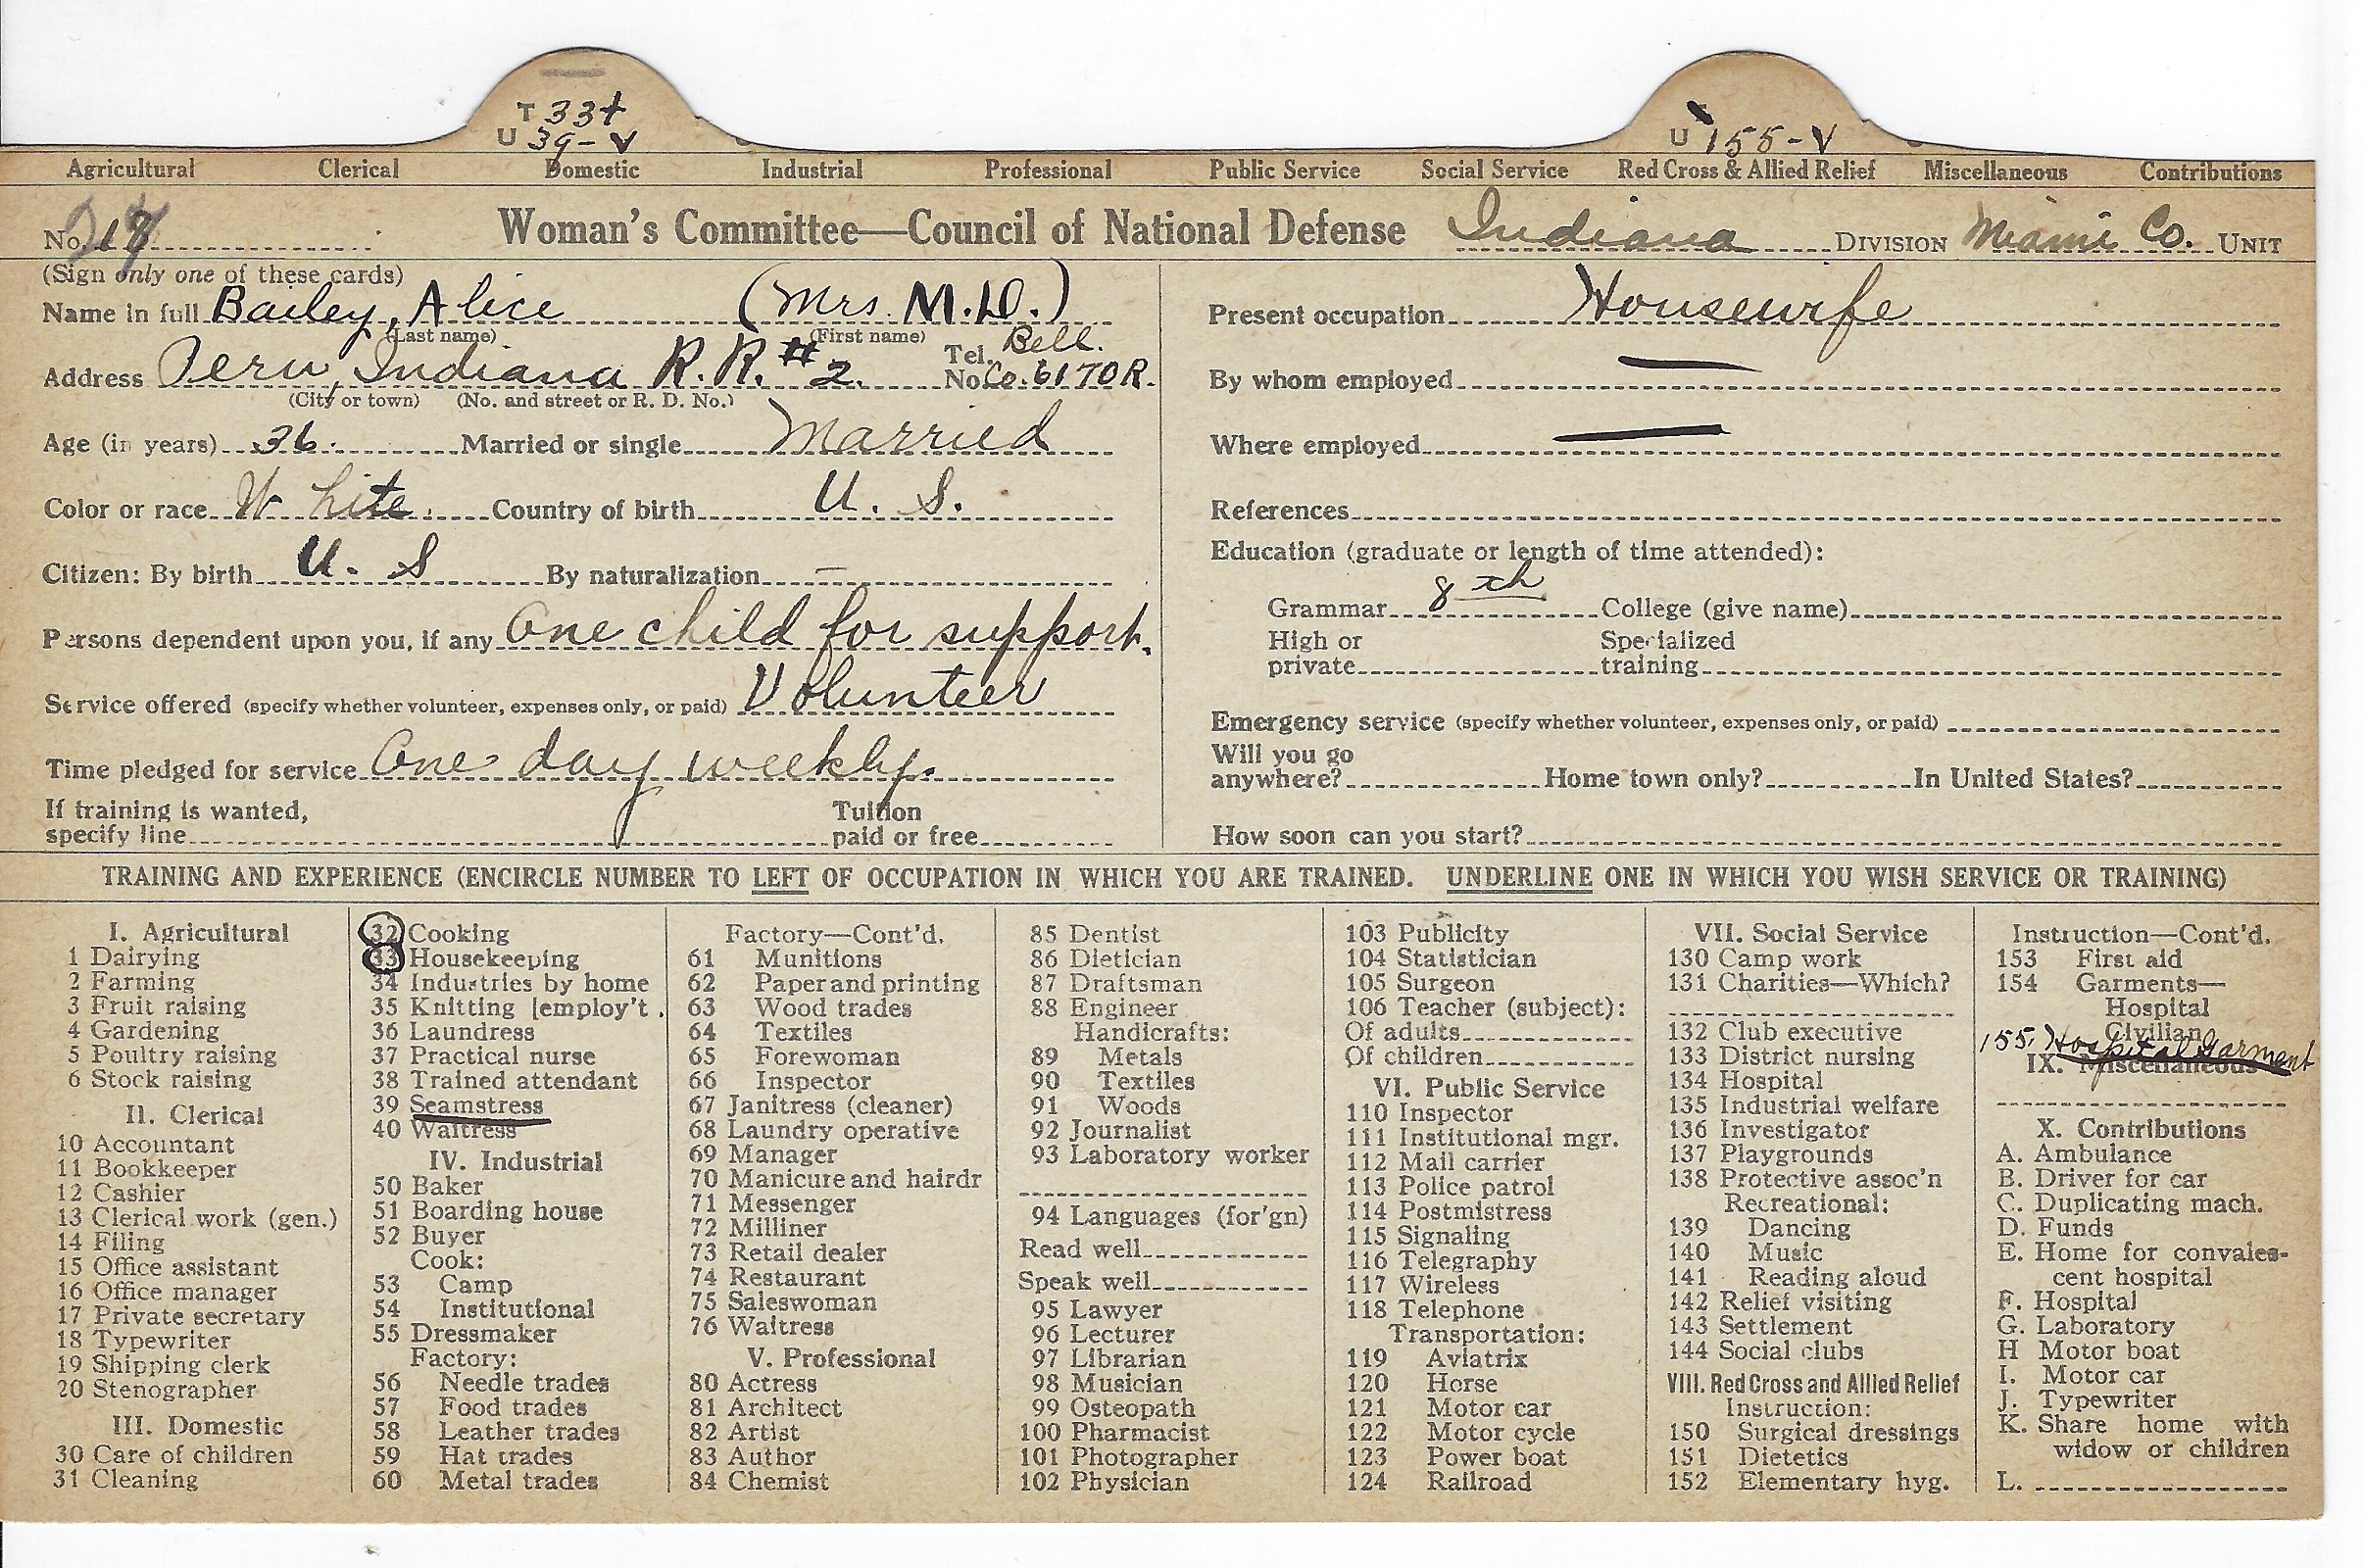 T 33+
U 39-V
U 155-V
Agricultural Clerical Domestic Industrial Professional Public Service Social Service Red Cross & Allied Relief Miscellaneous Contributions
No. Woman's Committee—Council of National Defense Indiana DIVISION Miami Co. UNIT
(Sign only one of these cards)
Name in full Bailey, Alice (Mrs. M.D.)
(Last name) (First name)
Address Peru, Indiana R.R. #2. Tel. No. Bell. Co. 6170R.
(City or town) (No. and street or R. D. No.)
Age (in years) 36. Married or single Married
Color or race White. Country of birth U. S.
Citizen: By birth U. S By naturalization —
Persons dependent upon you, if any One child for support.
Service offered (specify whether volunteer, expenses only, or paid) Volunteer
Time pledged for service One day weekly.
If training is wanted, specify line Tuition paid or free
Present occupation Housewife
By whom employed —
Where employed —
References
Education (graduate or length of time attended):
Grammar 8th College (give name)
High or private Specialized training
Emergency service (specify whether volunteer, expenses only, or paid)
Will you go anywhere? Home town only? In United States?
How soon can you start?
TRAINING AND EXPERIENCE (ENCIRCLE NUMBER TO LEFT OF OCCUPATION IN WHICH YOU ARE TRAINED. UNDERLINE ONE IN WHICH YOU WISH SERVICE OR TRAINING)
I. Agricultural
1 Dairying
2 Farming
3 Fruit raising
4 Gardening
5 Poultry raising
6 Stock raising
II. Clerical
10 Accountant
11 Bookkeeper
12 Cashier
13 Clerical work (gen.)
14 Filing
15 Office assistant
16 Office manager
17 Private secretary
18 Typewriter
19 Shipping clerk
20 Stenographer
III. Domestic
30 Care of children
31 Cleaning
32 Cooking
33 Housekeeping
34 Industries by home
35 Knitting [employ't.
36 Laundress
37 Practical nurse
38 Trained attendant
39 Seamstress
40 Waitress
IV. Industrial
50 Baker
51 Boarding house
52 Buyer
Cook:
53 Camp
54 Institutional
55 Dressmaker
Factory:
56 Needle trades
57 Food trades
58 Leather trades
59 Hat trades
60 Metal trades
Factory—Cont'd.
61 Munitions
62 Paper and printing
63 Wood trades
64 Textiles
65 Forewoman
66 Inspector
67 Janitress (cleaner)
68 Laundry operative
69 Manager
70 Manicure and hairdr
71 Messenger
72 Milliner
73 Retail dealer
74 Restaurant
75 Saleswoman
76 Waitress
V. Professional
80 Actress
81 Architect
82 Artist
83 Author
84 Chemist
85 Dentist
86 Dietician
87 Draftsman
88 Engineer
Handicrafts:
89 Metals
90 Textiles
91 Woods
92 Journalist
93 Laboratory worker
94 Languages (for'gn)
Read well
Speak well
95 Lawyer
96 Lecturer
97 Librarian
98 Musician
99 Osteopath
100 Pharmacist
101 Photographer
102 Physician
103 Publicity
104 Statistician
105 Surgeon
106 Teacher (subject):
Of adults
Of children
VI. Public Service
110 Inspector
111 Institutional mgr.
112 Mail carrier
113 Police patrol
114 Postmistress
115 Signaling
116 Telegraphy
117 Wireless
118 Telephone
Transportation:
119 Aviatrix
120 Horse
121 Motor car
122 Motor cycle
123 Power boat
124 Railroad
VII. Social Service
130 Camp work
131 Charities—Which?
132 Club executive
133 District nursing
134 Hospital
135 Industrial welfare
136 Investigator
137 Playgrounds
138 Protective assoc'n
Recreational:
139 Dancing
140 Music
141 Reading aloud
142 Relief visiting
143 Settlement
144 Social clubs
VIII. Red Cross and Allied Relief
Instruction:
150 Surgical dressings
151 Dietetics
152 Elementary hyg.
Instruction—Cont'd.
153 First aid
154 Garments—
Hospital
Civilian
155. Hospital Garment
IX. Miscellaneous
X. Contributions
A. Ambulance
B. Driver for car
C. Duplicating mach.
D. Funds
E. Home for convales-
cent hospital
F. Hospital
G. Laboratory
H Motor boat
I. Motor car
J. Typewriter
K. Share home with
widow or children
L.